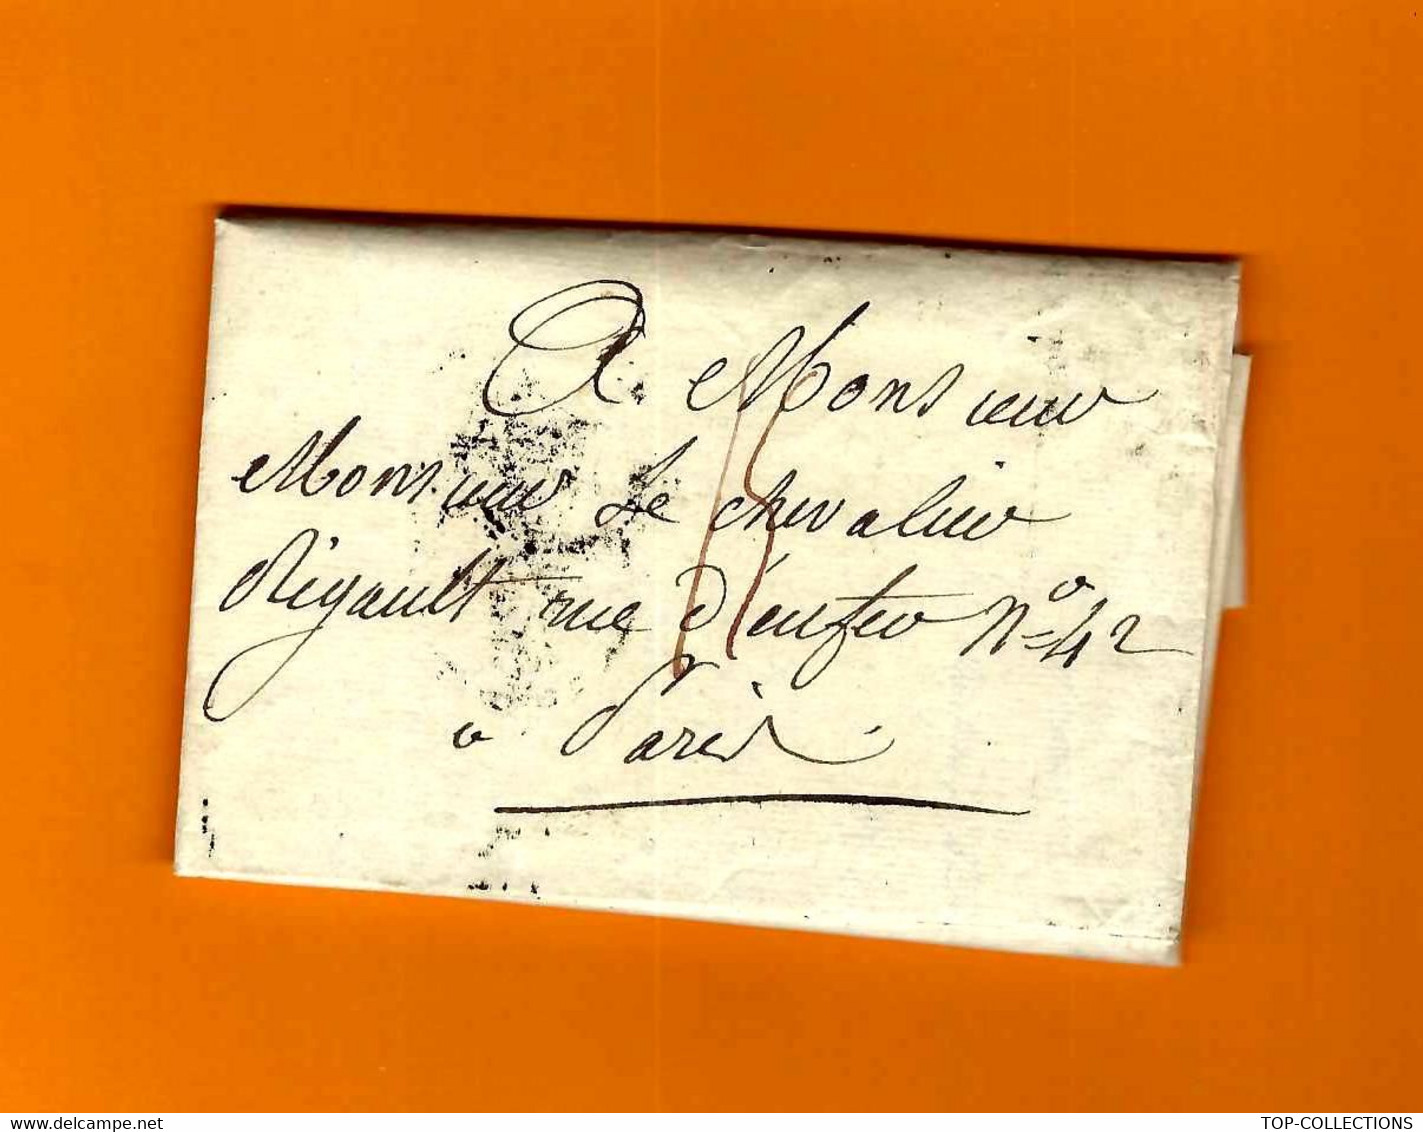 A Monsieur
Monsieur Le chevalier
Rigault rue d'enfer N.o 42
a Paris
www.delcampe.net
TOP-COLLECTIONS